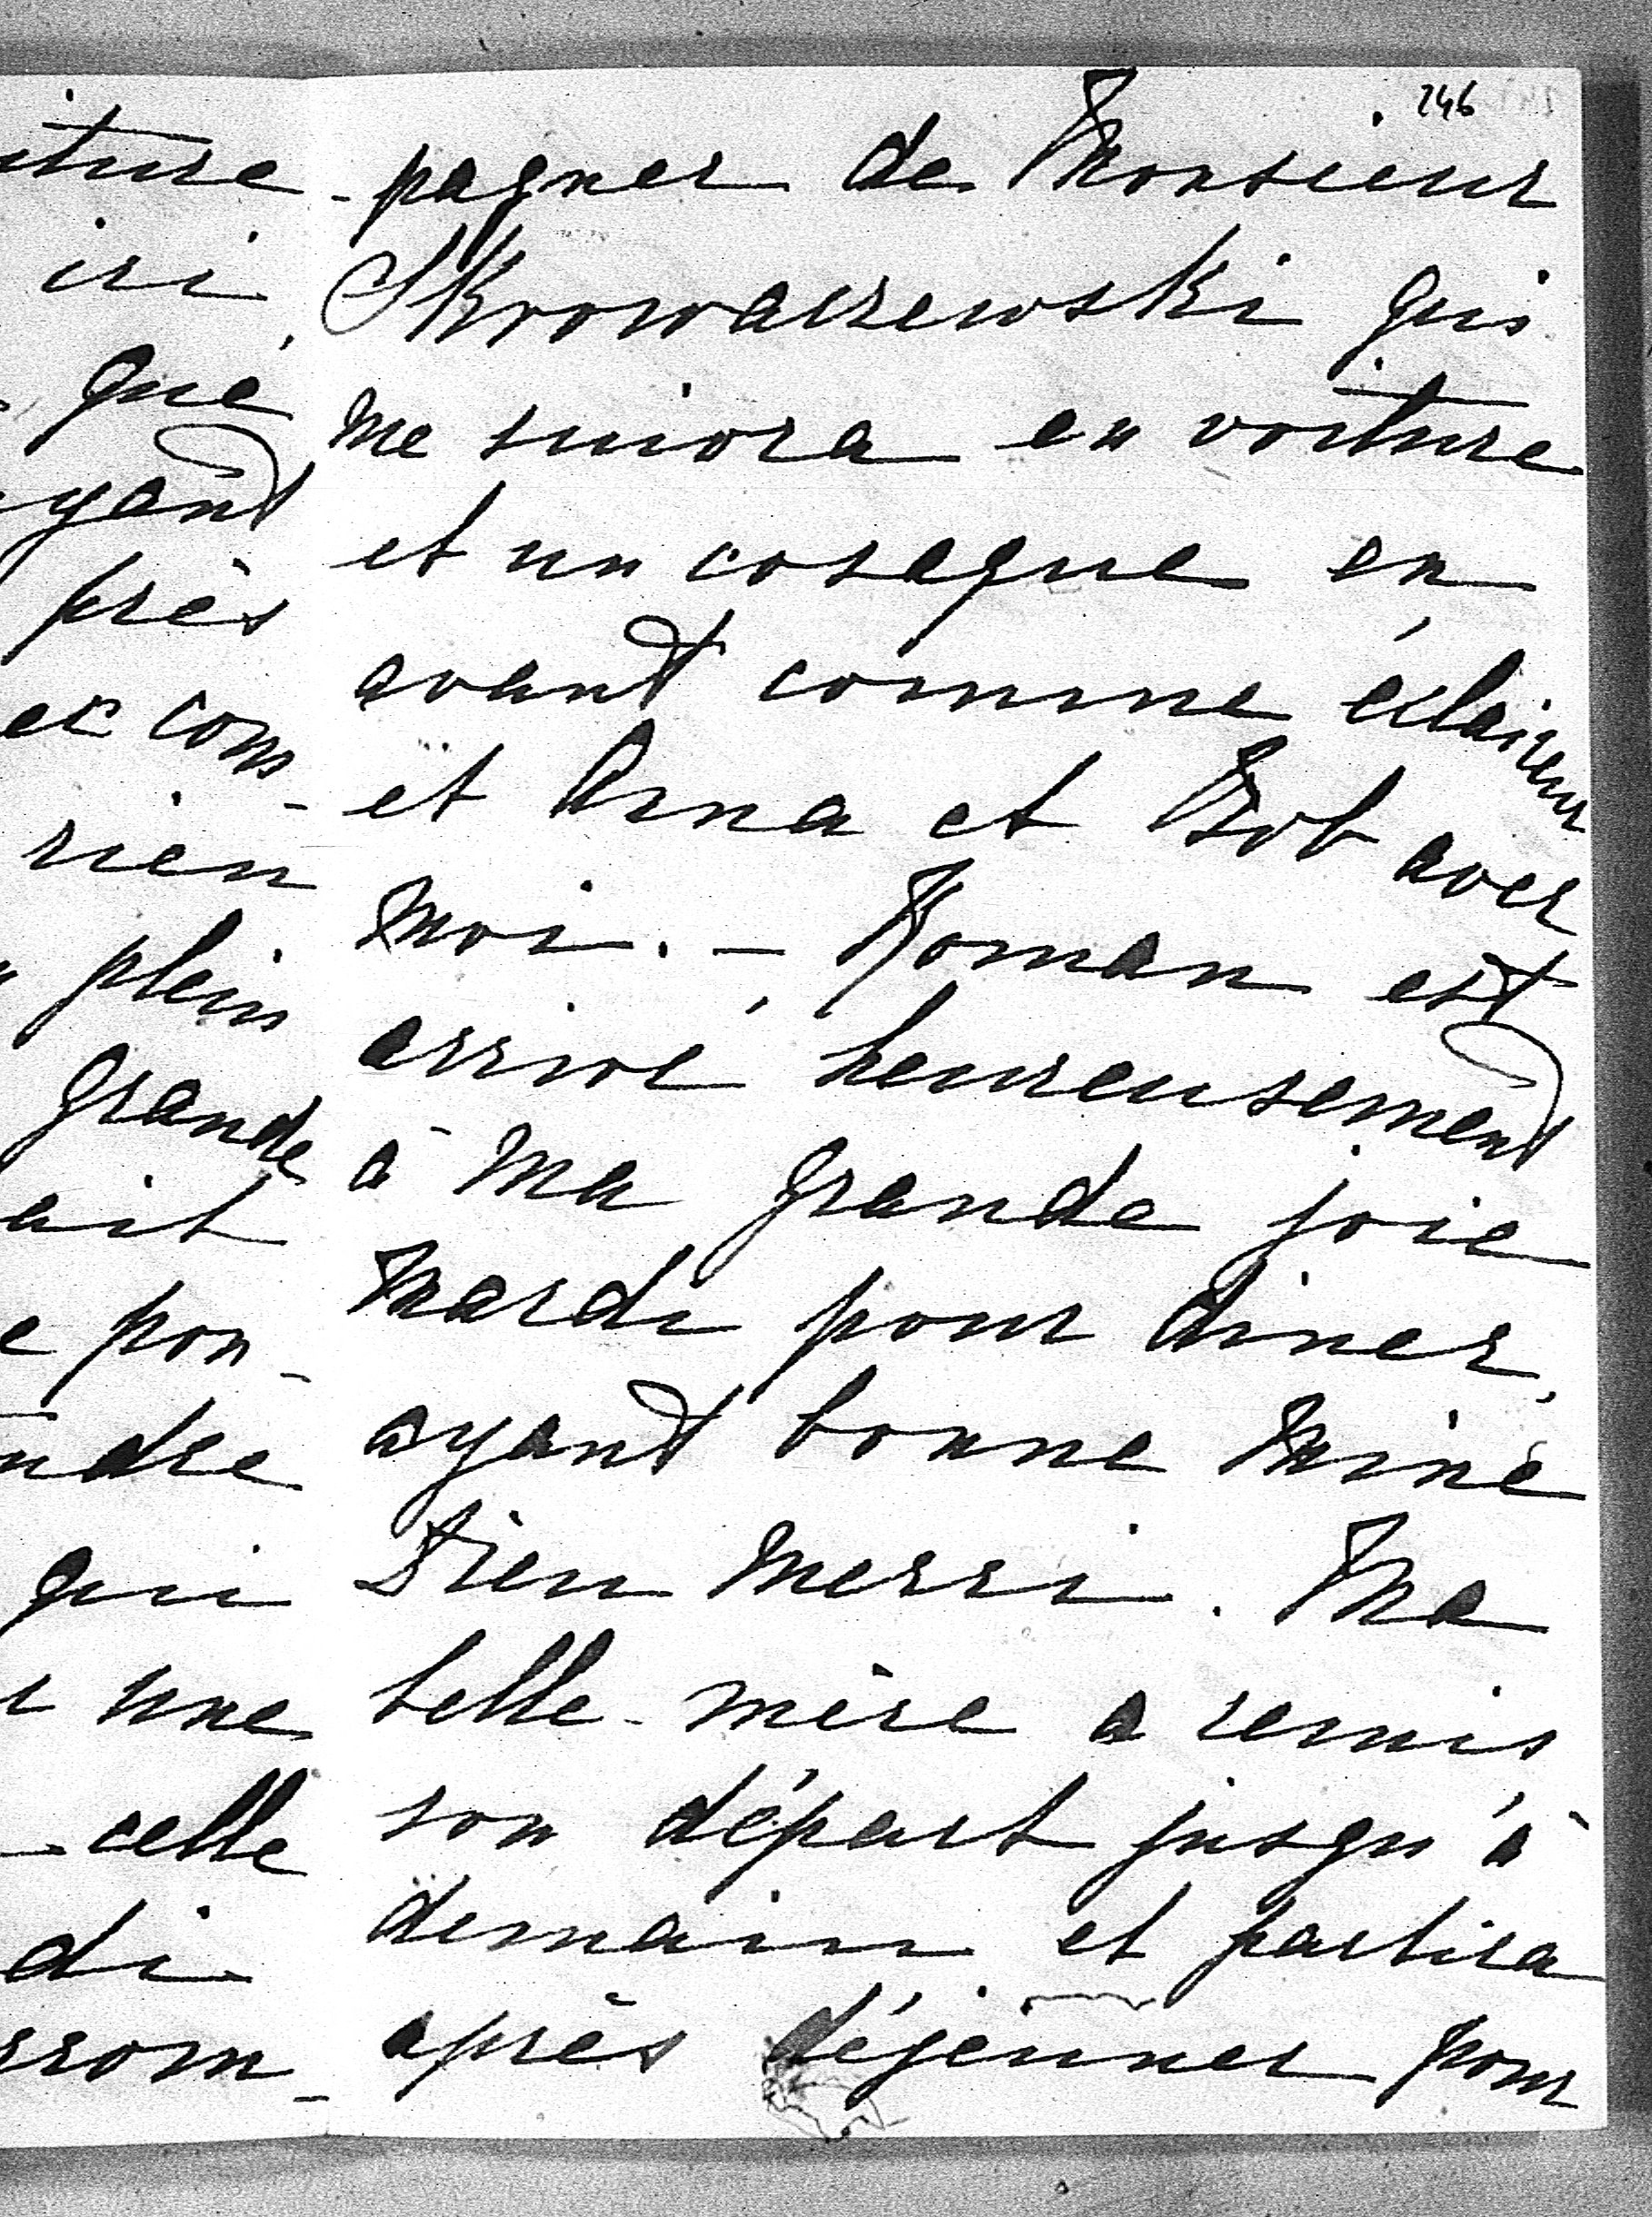 246
iture
ici,
que
ayant
près
ec com-
rien
plein
grande
ait
e pon-
ndre
qui
une
- celle
di
ccom-
-pagner de Monsieur
Skrowaczewski qui
me suivra en voiture
et un cosaque en
avant comme éclaireur
et Anna et Bob avec
moi. - Roman est
arrivé heureusement
à ma grande joie
Mardi pour diner,
ayant bonne mine
Dieu merci. Ma
belle-mère a remis
son départ jusqu'à
demain et partira
après déjeuner pour